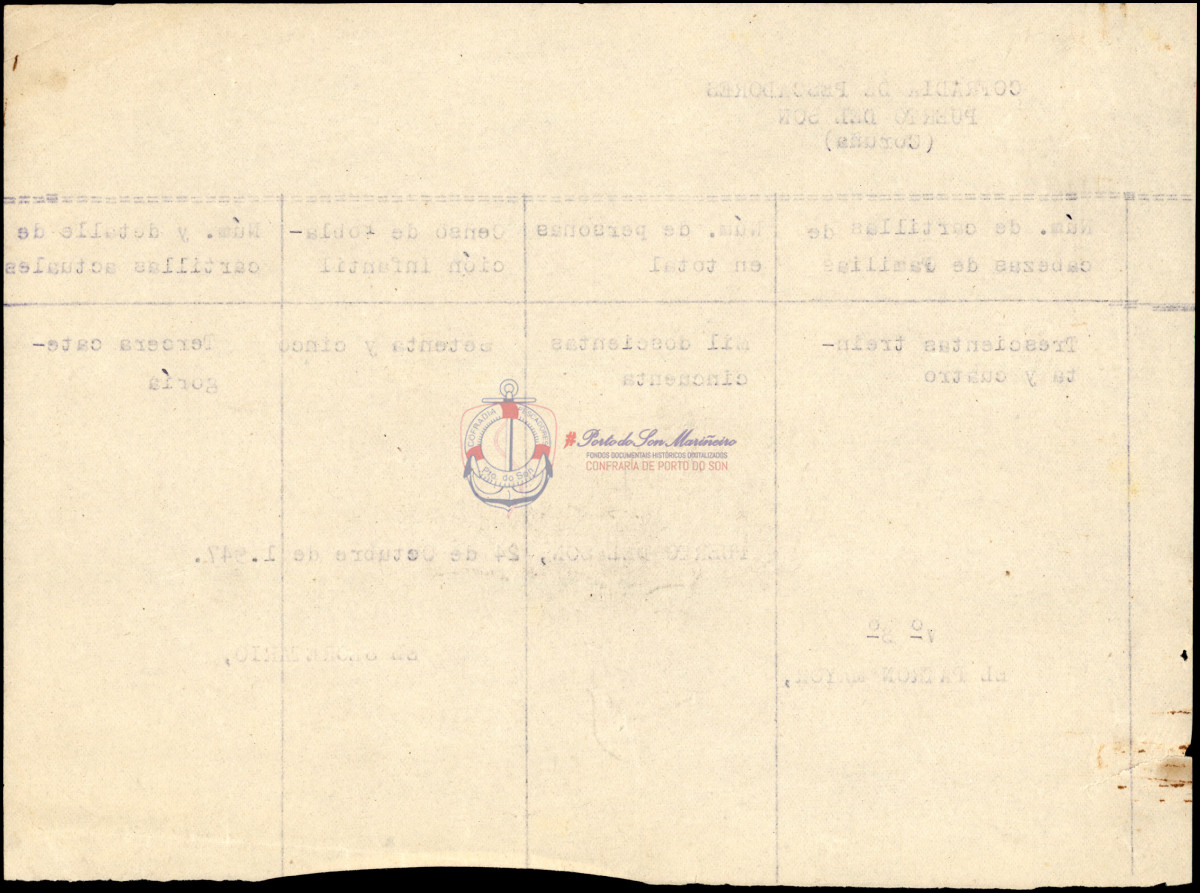 COFRADIA DE PESCADORES
PUERTO DEL SON
(Coruña)
Núm. de cartillas de
cabezas de familias
Núm. de personas
en total
Censo de Pobla-
ción infantil
Núm. y detalle de
cartillas actuales
Trescientas trein-
ta y cuatro
mil doscientas
cincuenta
Setenta y cinco
Tercera cate-
goría
COFRADIA PESCADORES
Pto. do Son
#Porto do Son Mariñeiro
FONDOS DOCUMENTAIS HISTÓRICOS DIXITALIZADOS
CONFRARÍA DE PORTO DO SON
PUERTO DEL SON, 24 de Octubre de 1.947.
Vº Bº
EL PATRON MAYOR,
EL SECRETARIO,